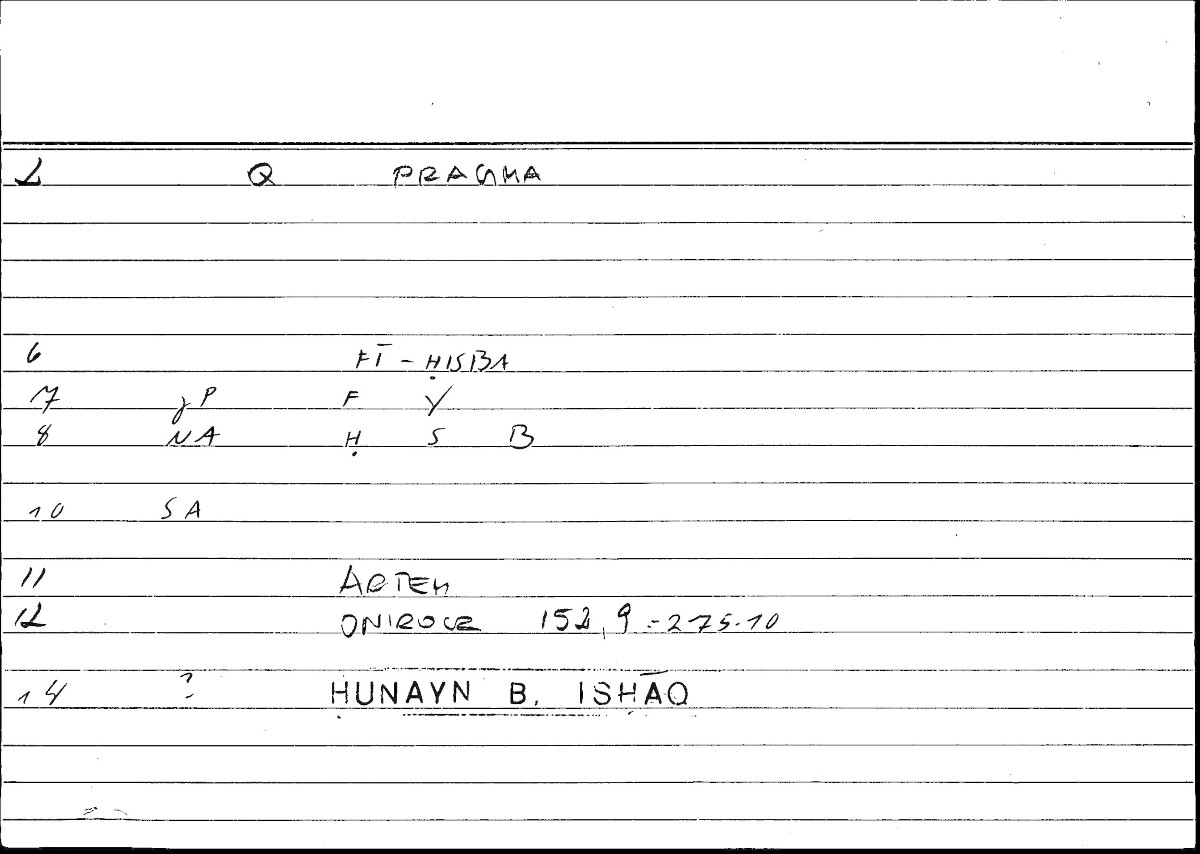 1 Q PRAGMA
6 FĪ - ḤISBA
7 gP F Y
8 NA Ḥ S B
10 SA
11 ARTEM
12 ONIROCR 152,9 - 275.10
14 ? ḤUNAYN B. ISḤĀQ